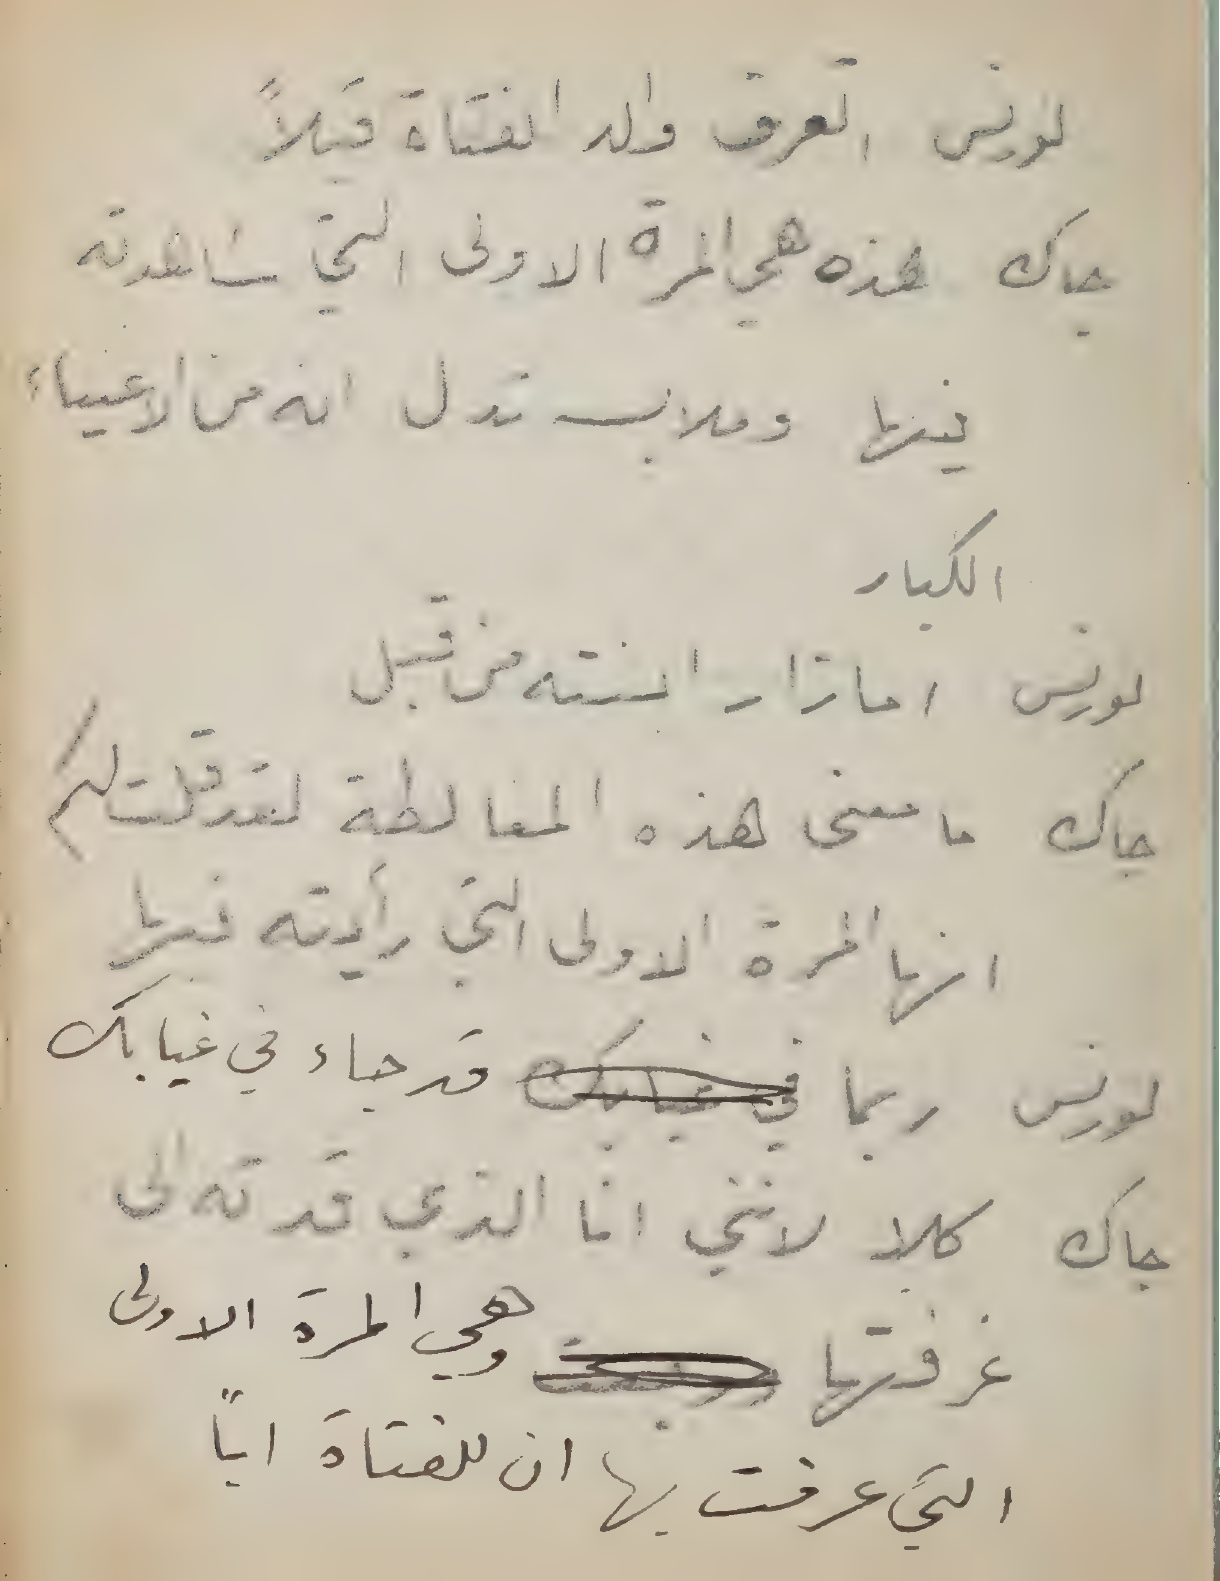 لورنس اتعرف والد الفتاة قبلاً
جاك هذه هي المرة الاولى التي شاهدته
فيها وملابسه تدل انه من الاغنياء
الكبار
لورنس اما زار ابنته من قبل
جاك ما معنى هذه المغالطة لقد قلت لكم
انها المرة الاولى التي رأيته فيها
لورنس ربما في غيابك قد جاء في غيابك
جاك كلا لانني انا الذي قدته الى
غرفتها وهي المرة الاولى
التي عرفت بها ان للفتاة اباً